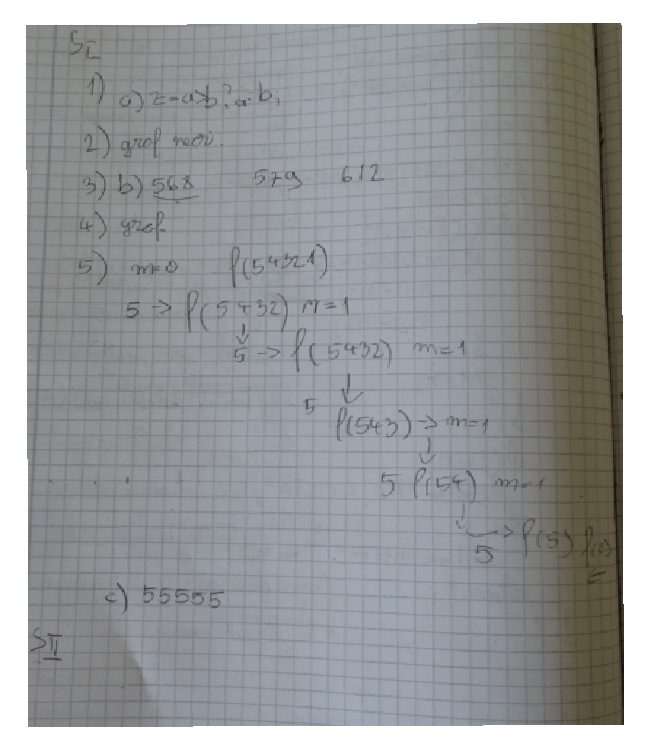 SI
1) a) z=a>b?a:b;
2) graf neori.
3) b) 568 579 612
4) graf
5) m=0 f(54321)
5 → f(5432) m=1
5 → f(5432) m=1
5
f(543) → m=1
5 f(54) m=1
5 → f(5) f(0)
c) 55555
SII